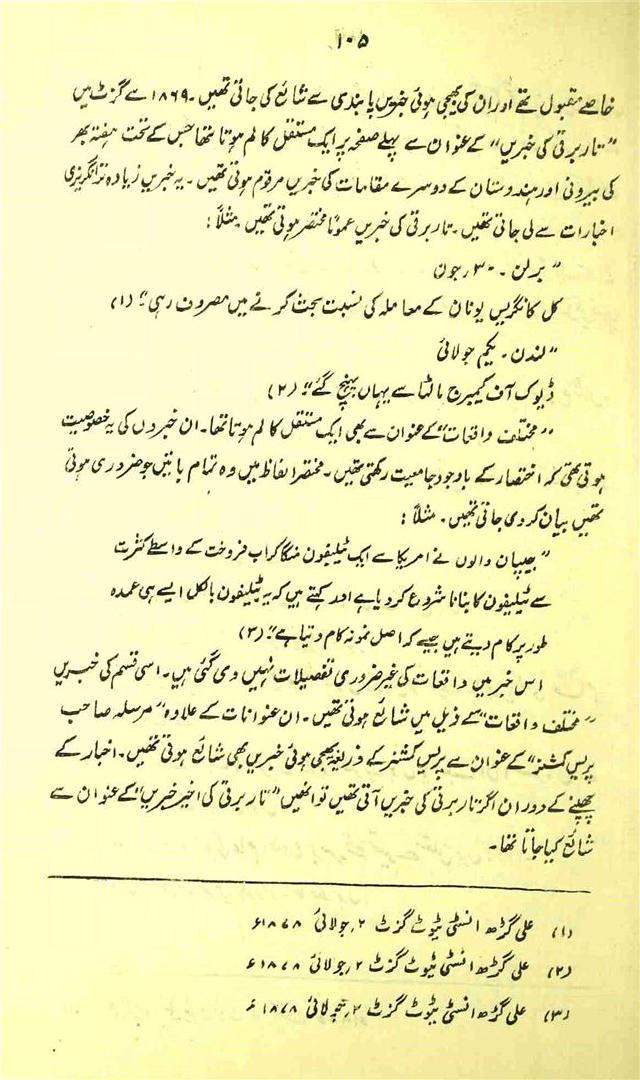 ۱۰۵
خاصے مقبول تھے اور ان کی بھیجی ہوئی خبریں پابندی سے شائع کی جاتی تھیں۔ ۱۸۶۹ سے گزٹ میں
”تار برقی کی خبریں“ کے عنوان سے پہلے صفحہ پر ایک مستقل کالم ہوتا تھا جس کے تحت ہفتہ بھر
کی بیرونی اور ہندوستان کے دوسرے مقامات کی خبریں مرقوم ہوتی تھیں۔ یہ خبریں زیادہ تر انگریزی
اخبارات سے لی جاتی تھیں۔ تار برقی کی خبریں عموماً مختصر ہوتی تھیں۔ مثلاً:
”برلن۔ ۳۰ر جون
کل کانگریس یونان کے معاملہ کی نسبت بحث کرنے میں مصروف رہی“۔ (۱)
”لندن۔ یکم جولائی
ڈیوک آف کیمبرج مالٹا سے یہاں پہنچ گئے“۔ (۲)
”مختلف واقعات“ کے عنوان سے بھی ایک مستقل کالم ہوتا تھا۔ ان خبروں کی یہ خصوصیت
ہوتی تھی کہ اختصار کے باوجود جامعیت رکھتی تھیں۔ مختصر الفاظ میں وہ تمام باتیں جو ضروری ہوتی
تھیں بیان کر دی جاتی تھیں۔ مثلاً:
”جیپان والوں نے امریکا سے ایک ٹیلیفون منگا کر اب فروخت کے واسطے کثرت
سے ٹیلیفون کا بنانا شروع کر دیا ہے اور کہتے ہیں کہ یہ ٹیلیفون بالکل ایسے ہی عمدہ
طور پر کام دیتے ہیں جیسے کہ اصل نمونہ کام دیتا ہے“۔ (۳)
اس خبر میں واقعات کی غیر ضروری تفصیلات نہیں دی گئی ہیں۔ اسی قسم کی خبریں
”مختلف واقعات“ کے ذیل میں شائع ہوتی تھیں۔ ان عنوانات کے علاوہ ”مرسلہ صاحب
پریس کمشنر“ کے عنوان سے پریس کمشنر کے ذریعہ بھیجی ہوئی خبریں بھی شائع ہوتی تھیں۔ اخبار کے
چھپنے کے دوران اگر تار برقی کی خبریں آتی تھیں تو انھیں ”تار برقی کی اخیر خبریں“ کے عنوان سے
شائع کیا جاتا تھا۔
(۱) علی گڑھ انسٹی ٹیوٹ گزٹ ۲ر جولائی ۱۸۷۸ء
(۲) علی گڑھ انسٹی ٹیوٹ گزٹ ۲ر جولائی ۱۸۷۸ء
(۳) علی گڑھ انسٹی ٹیوٹ گزٹ ۲ر جولائی ۱۸۷۸ء